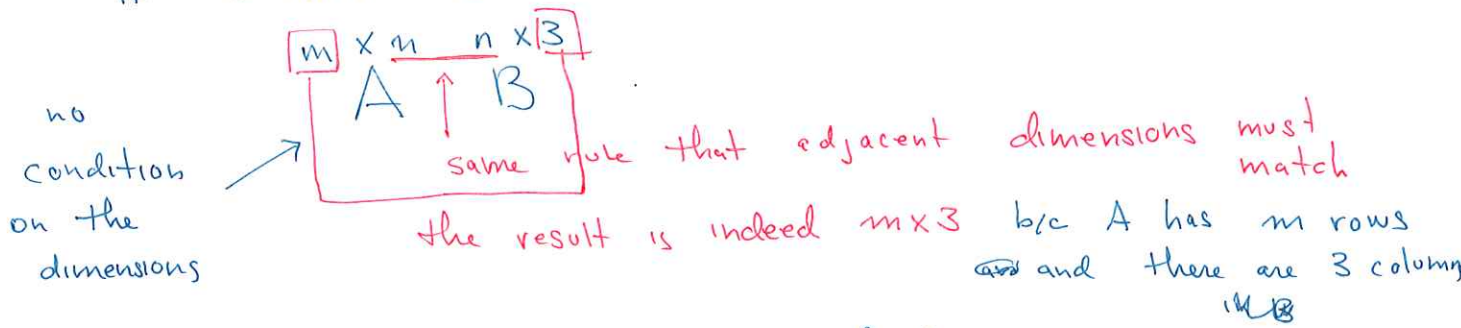 m × n n × 3
A B
no
condition
on the
dimensions
same rule that adjacent dimensions must
match
the result is indeed m×3 b/c A has m rows
and there are 3 column
in B